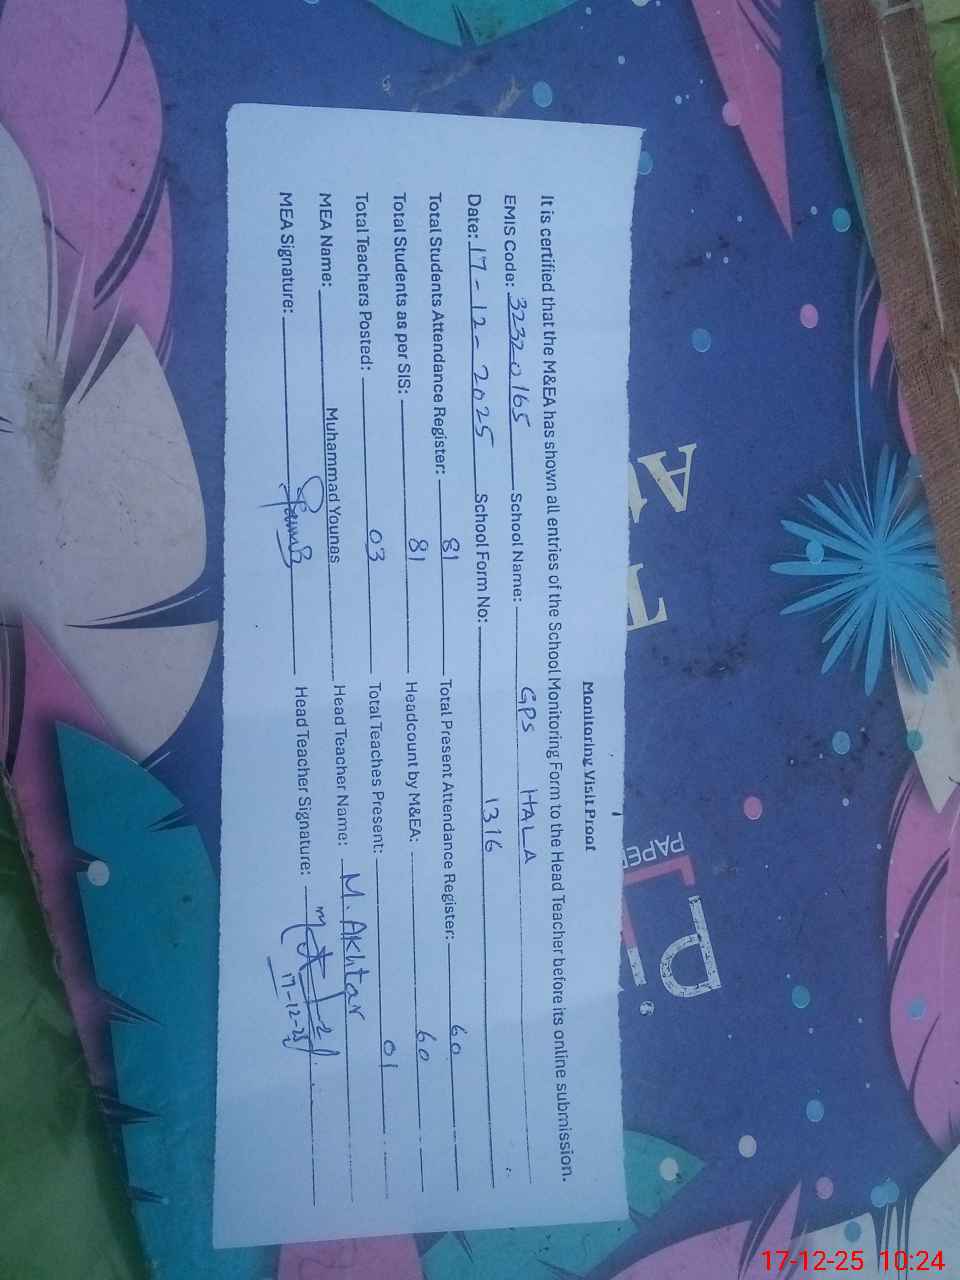 Monitoring Visit Proof
It is certified that the M&EA has shown all entries of the School Monitoring Form to the Head Teacher before its online submission.
EMIS Code: 32320165 School Name: GPS HALA
Date: 17-12-2025 School Form No: 1316
Total Students Attendance Register: 81 Total Present Attendance Register: 60
Total Students as per SIS: 81 Headcount by M&EA: 60
Total Teachers Posted: 03 Total Teaches Present: 01
MEA Name: Muhammad Younas Head Teacher Name: M. Akhtar
MEA Signature: Head Teacher Signature:
17-12-25
PAPE
17-12-25 10:24